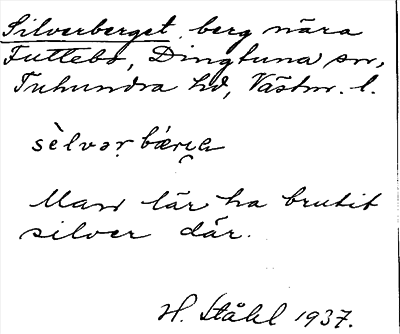 Silverberget, berg nära
Futtebo, Dingtuna sn,
Tuhundra hd, Västm. l.
Man lär ha brutit
silver där.
H. Ståhl 1937.